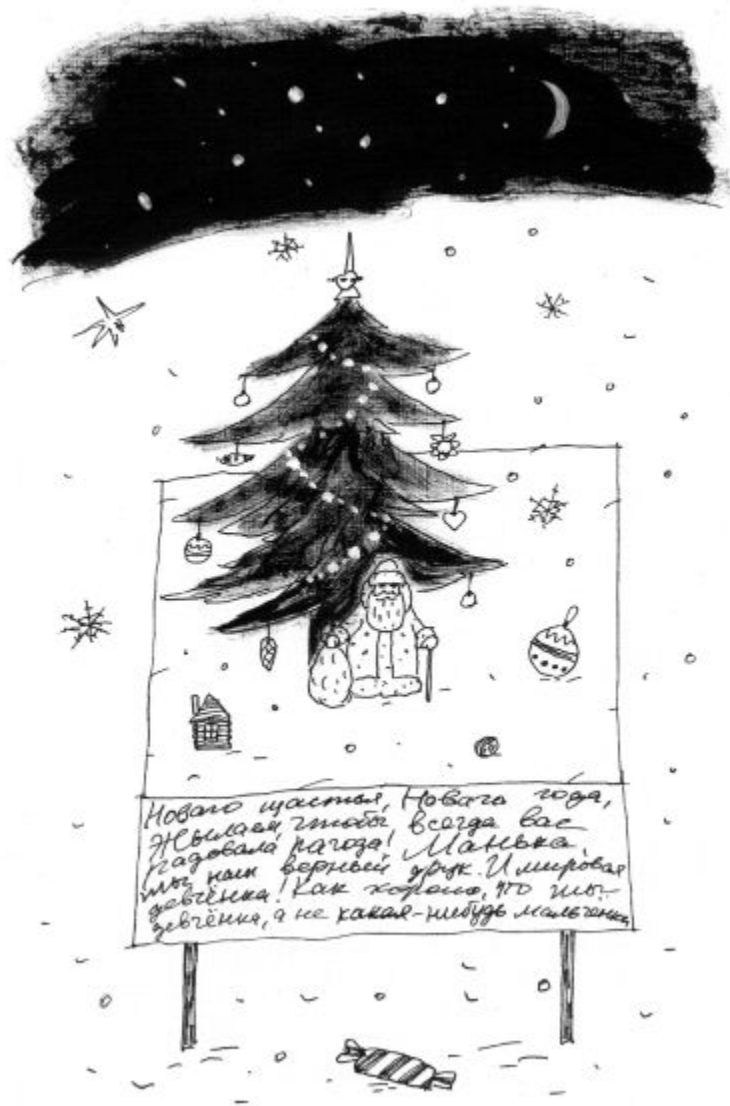 Новаго щастья, Новага года,
Жылаем, чтобы всегда вас
Радовала пагода! Манька,
ты наш верный друк. И мировая
девчёнка! Как хорошо, что ты-
девчёнка, а не какая-нибудь мальчёнка